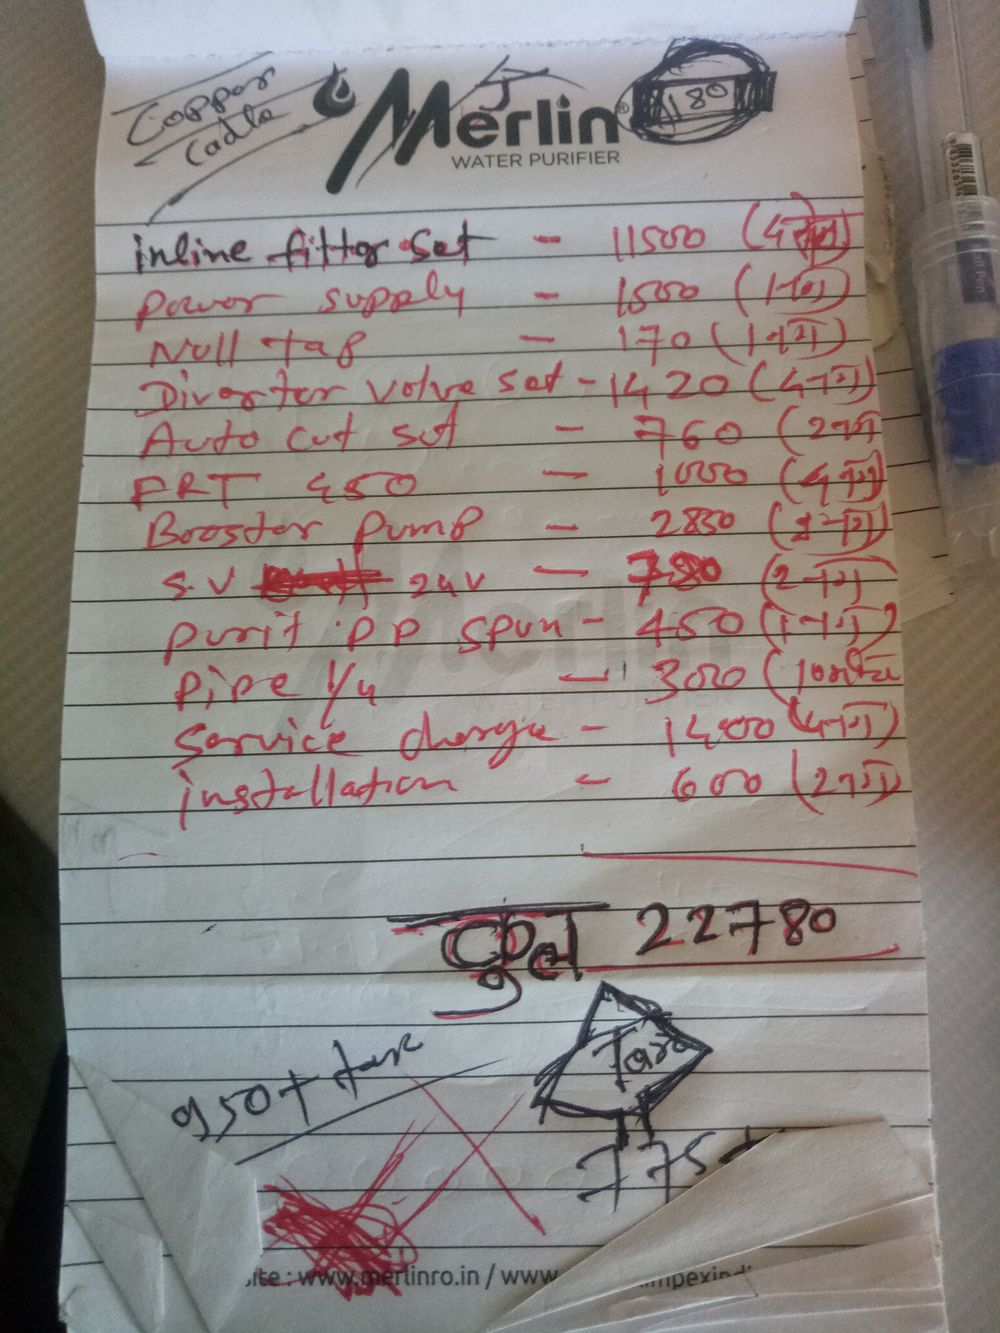 Copper
Cadla
Merlin®
WATER PURIFIER
1180
inline fittor set - 11500 (4 नग)
power supply - 1500 (1 नग)
Null tap - 170 (1 नग)
Divortor volve set - 1420 (4 नग)
Auto cut set - 760 (2 नग
FRT 450 - 1000 (4 नग)
Booster pump - 2850 (1 नग)
S.V 24V - 780 (2 नग)
purit PP spun - 450 (1 नग)
Pipe 1/4 - 300 (10
Service charge - 1400 (4 नग)
installation - 600 (2 नग)
कुल 22780
950+ tax
Tara
775+
site : www.merlinro.in / www.